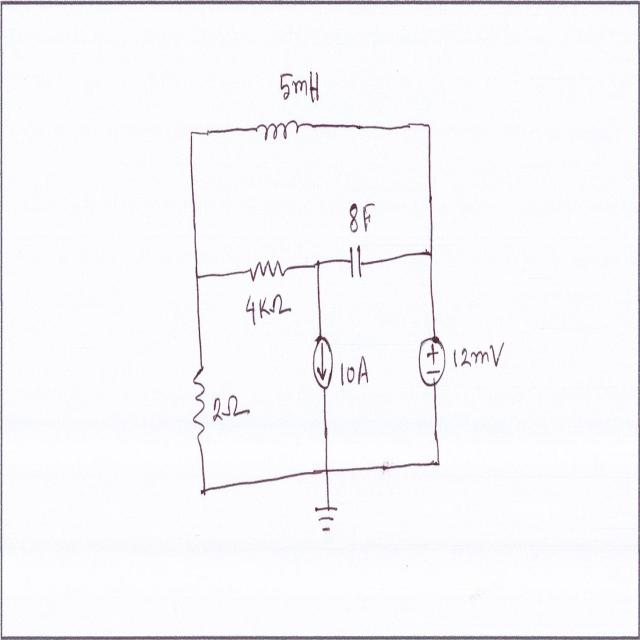 5mH
8F
4KΩ
10A
+
−
12mV
2Ω